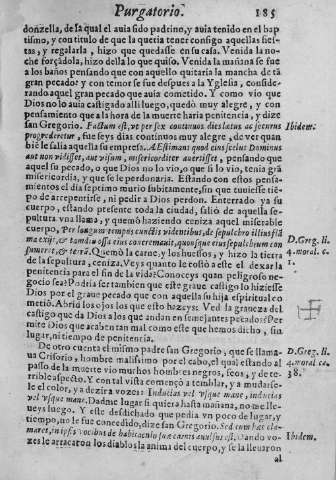 Purgatorio. 185
donzella, de la qual el auia sido padrino, y auia tenido en el bap
tismo, y con titulo de que la queria tener consigo aquellas fies-
tas, y regalarla, hizo que quedasse en su casa. Venida la no-
che forçádola, hizo della lo que quiso. Venida la mañana se fue
a los baños pensando que con aquello quitaria la mancha de tã
gran pecado: y con temor se fue despues a la Yglesia, conside-
rando aquel gran pecado que auia cometido. Y como vio que
Dios no lo auia castigado alli luego, quedó muy alegre, y con
pensamiento que a la hora de la muerte haria penitencia, y dize
san Gregorio. Factum est, vt per sex continuos dies lætus ac securus
Ibidem.
progrederetur, fue seys dias continuos muy alegre, de ver quan
bié le salia aquella su empresa. Aestimans quod eius scelus Dominus
aut non vidisset, aut visum, misericorditer auertisset, pensando que
aquel su pecado, o que Dios no lo vio, o que si lo vio, tenia grã
misericordia, y que se le perdonaria. Estando con estos pensa-
mientos el dia septimo murio subitamente, sin que tuuiesse tiẽ-
po de arrepentirse, ni pedir a Dios perdon. Enterrado ya su
cuerpo, estando presente toda la ciudad, salió de aquella se-
pultura vna llama, y quemò haziendo ceniza aquel miserable
cuerpo, Per longum tempus cunctis videntibus, de sepulchro illius flã
ma exijt, & tamdiu ossa eius concremauit, quousque eius sepulcrum con
D. Greg. li.
sumeret, & terrã. Quemò la carne, y los huessos, y hizo la tierra
4. moral. c.
de la sepultura, ceniza. Veys quanto le costò a este el dexar la
1.
penitencia para el fin de la vida? Conoceys quan peligroso ne-
gocio sea? Podria ser tambien que este graue castigo lo hiziesse
Dios por el graue pecado que con aquella su hija espiritual co
metiò. Abrid los ojos los que esto hazeys. Ved la graueza del
castigo que da Dios a los que andan en semejantes pecados: Per
mite Dios que acaben tan mal como este que hemos dicho, sin
lugar, ni tiempo de penitencia.
De otro cuenta el mismo padre san Gregorio, que se llama-
D. Greg. li.
ua Crisorio, hombre malissimo por el cabo, el qual estando al
4. moral ca.
passo de la muerte vio muchos hombres negros, feos, y de ter-
38.
rible aspecto. Y con tal vista començò a temblar, y a mudarse-
le el color, y a dezir a vozes: Inducias vel vsque mane, inducias
vel vsque mane. Dadme lugar si quiera hasta mañana, no me lle-
ueys luego. Y este desdichado que pedia vn poco de lugar, y
tiempo, no le fue concedido, dize san Gregorio. Sed cum hæc cla-
maret, in ipsis vocibus de habitaculo suæ carnis auulsus est, Dando vo-
Ibidem.
zes le arrancaron los diablos la anima del cuerpo, y se la lleuaron
al